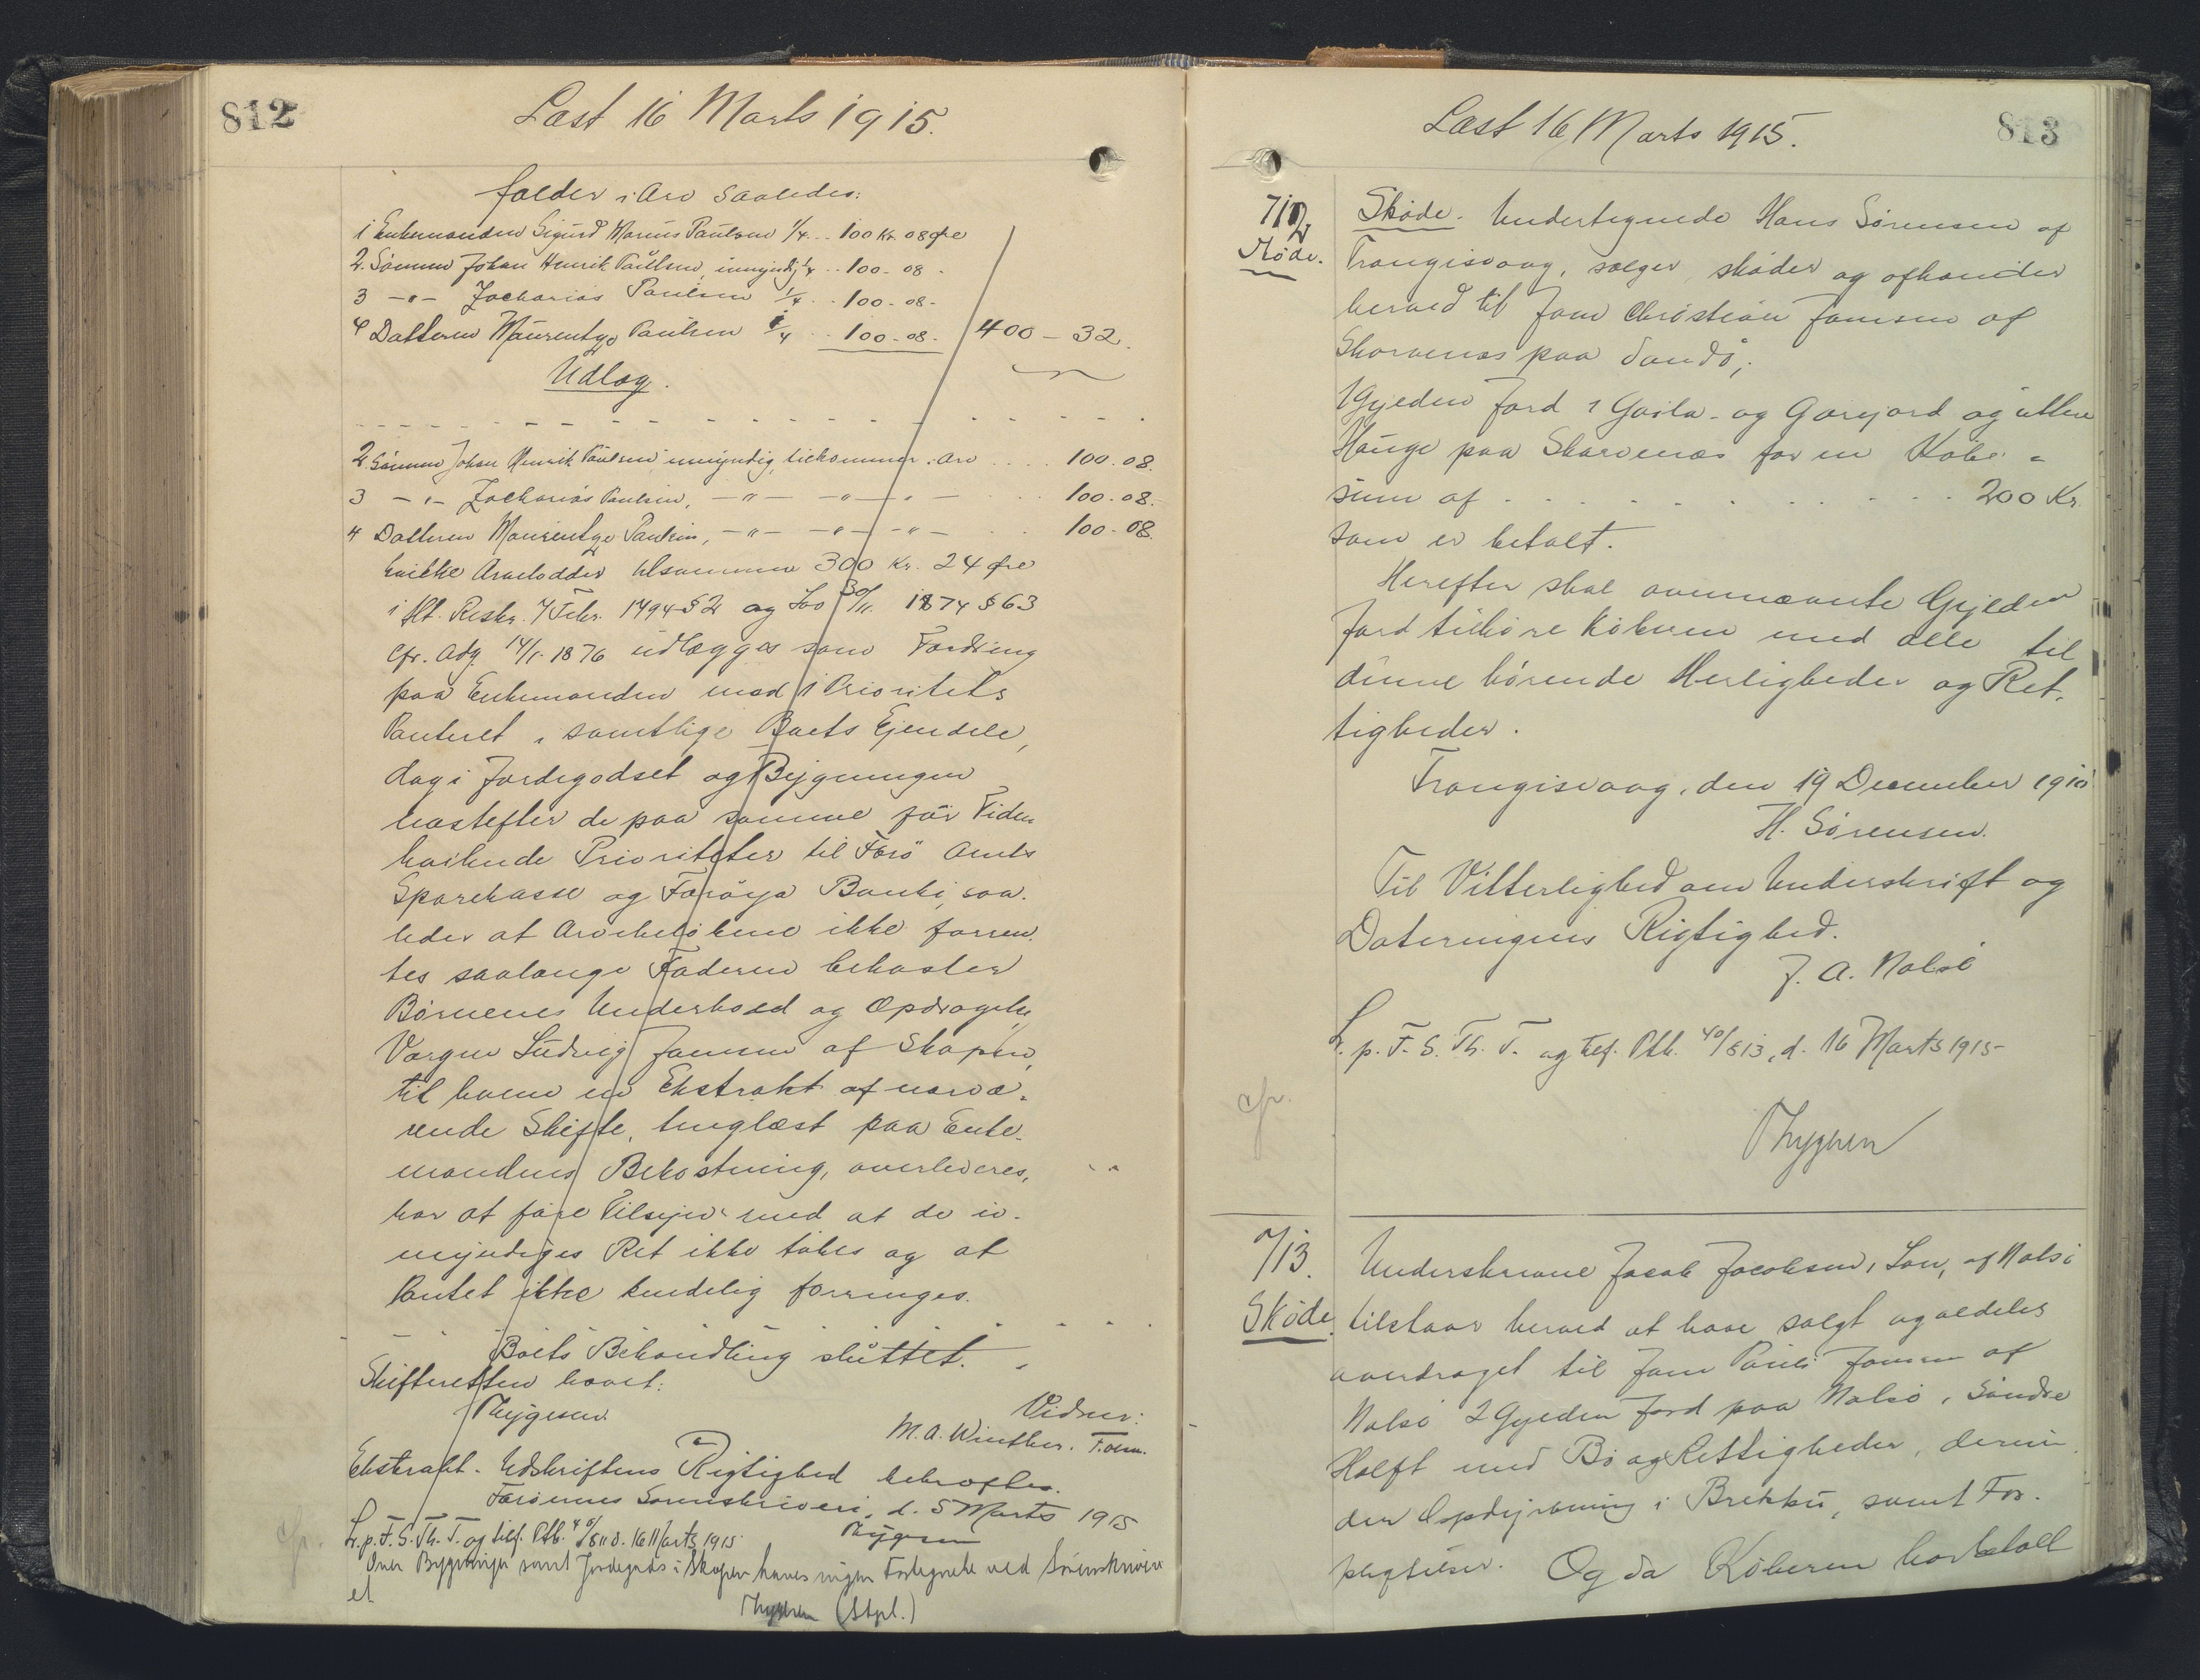 812
Læst 16 Marts 1915.
falder i Arv saaledes:
1 Enkemanden Sigurd Marius Paulsen 1/4 .. 100 Kr. 08 Øre
2. Sønnen Johan Henrik Paulsen, umyndig 1/4 .. 100 - 08 -
3 -"- Zacharias Paulsen 1/4 .. 100 - 08 -
4 Datteren Maurentze Paulsen 1/4 .. 100 - 08 - 400 - 32.
Udlæg.
2. Sønnen Johan Henrik Paulsen, umyndig, tilkommer i Arv .... 100.08.
3 -"- Zacharias Paulsen, -"- -"- -"- ... 100.08.
4 Datteren Maurentze Paulsen, -"- -"- -"- .. 100-08.
hvilke Arvelodder tilsammen 300 Kr. 24 Øre
i Ht. Reskr. 7 Febr. 1794 § 2 og Lov 30/11. 1874 § 63
cfr. Adg 14/1. 1876 udlægges som Fordring
paa Enkemanden med 1 Prioritets
Panteret i samtlige Boets Ejendele,
dog i Jordegodset og Bygningen
næstefter de paa samme før Tiden
hvilende Prioriteter til Færø Amts
Sparekasse og Føroya Banki, saa-
ledes at Arvebeløbene ikke forren-
tes saalænge Faderen bekoster
Børnenes Underhold og Opdragelse,
Værgen Ludvig Jensen af Skopen,
til hvem en Ekstrakt af nærvæ-
rende Skifte, tinglæst paa Enke-
mandens Bekostning, overleveres,
har at føre Tilsyn med at de u-
myndiges Ret ikke tabes og at
Pantet ikke kendelig forringes.
Boets Behandling sluttet.
Skifteretten hævet.
Thygesen. Vidner:
M. A. Winther. F. Olsen.
Ekstrakt-Udskriftens Rigtighed bekræftes.
Færøernes Sorenskriveri, d. 5 Marts 1915
Thygesen
Lr. p. F. S. Th. T. og tilf. Ptb. 40/811 d. 16 Marts 1915.
Over Bygninger samt Jordegods i Skopen haves ingen Fortegnelse ved Sorenskriveri
et
Thygesen (Stpl.)
cfr.
Læst 16 Marts 1915.
813
712
Skøde.
Skøde. Undertegnede Hans Sørensen af
Trangisvaag, sælger, skøder og afhænder
herved til Jens Christian Jensen af
Skarvenæs paa Sandø,
1 Gylden Jord i Gaila- og Garejord og uttere
Hauge paa Skarvenæs for en Købe-
sum af . . . . . . . . . 200 Kr.
som er betalt.
Herefter skal ovennævnte Gylden
Jord tilhøre Køberen med alle til
denne hørende Herligheder og Ret-
tigheder.
Trangisvaag, den 19 December 1910
H. Sørensen.
Til Vitterlighed om Underskrift og
Dateringens Rigtighed.
J. A. Nolsö
Lr. p. F. S. Th. T. og tilf. Ptb. 40/813, d. 16 Marts 1915-
cfr.
Thygesen
713.
Skøde.
Underskrevne Jacob Jacobsen, Søn, af Nolsø
tilstaar herved at have solgt og aldeles
overdraget til Jens Pauli Jensen af
Nolsø 2 Gylden Jord paa Nolsø, Søndre
Halft med Bø og Rettigheder, derun-
der Opdyrkning i Brekku, samt For-
pligtelser. Og da Køberen har betalt